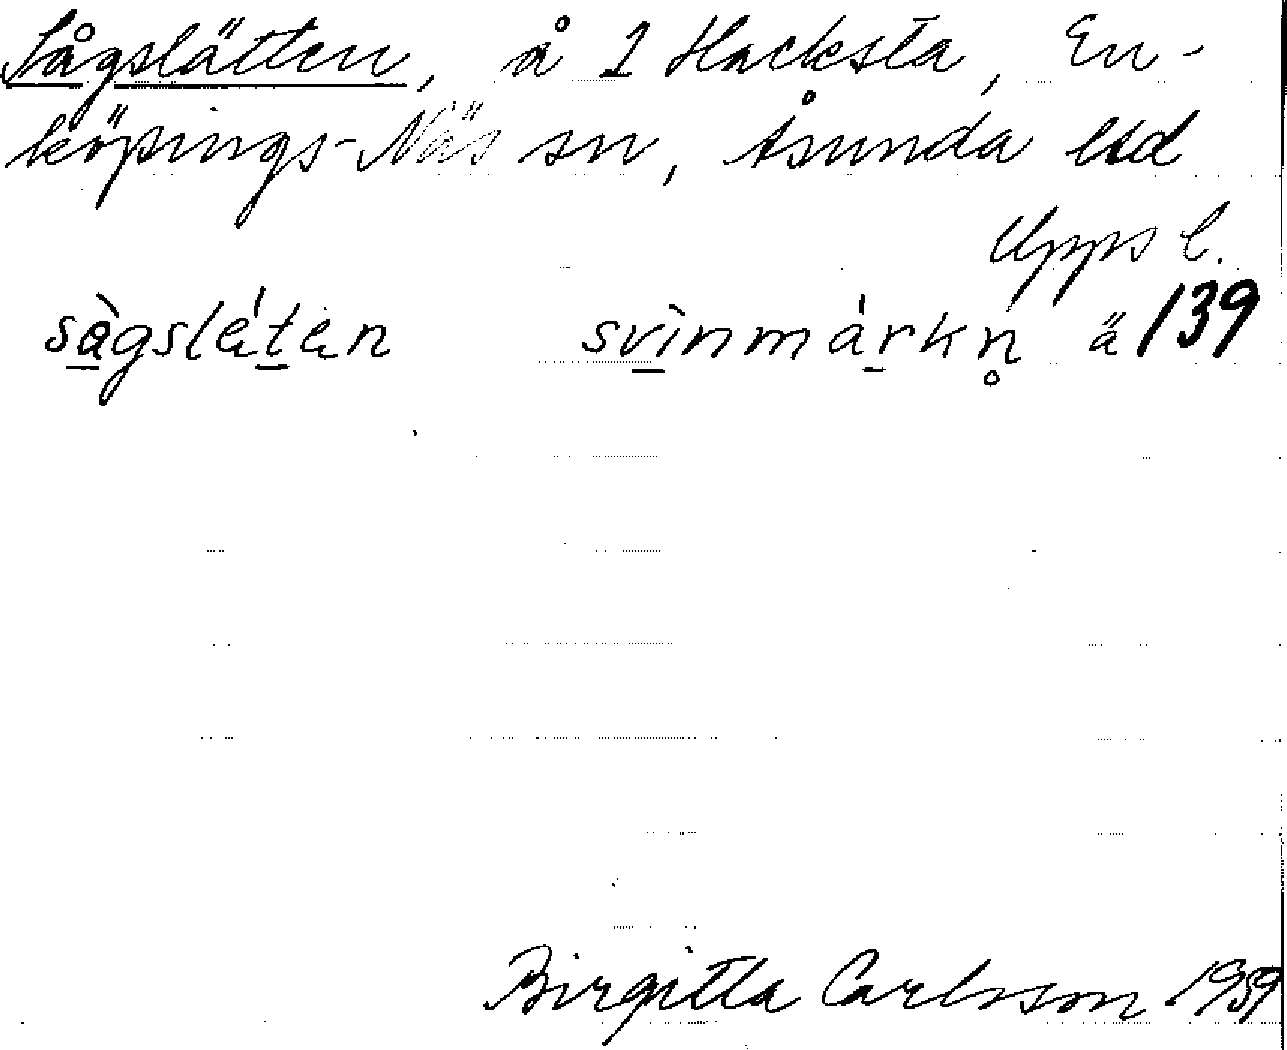 Sågslätten, å 1 Hacksta, En-
köpings-Näs sn, Åsunda hd
Upps l.
sàgsléten svìnmárkn̥ ä 139
Birgitta Carlsson 1959